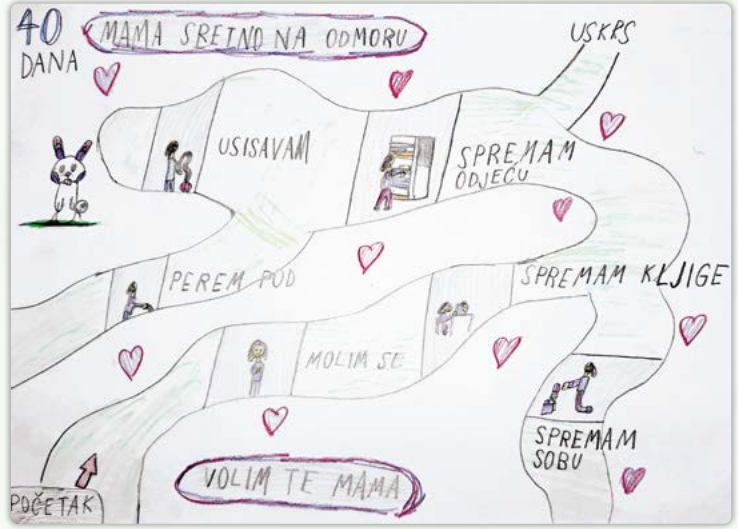 40
DANA
MAMA SRETNO NA ODMORU
USKRS
USISAVAM
SPREMAM
ODJEĆU
PEREM POD
SPREMAM KLJIGE
MOLIM SE
SPREMAM
SOBU
VOLIM TE MAMA
POČETAK